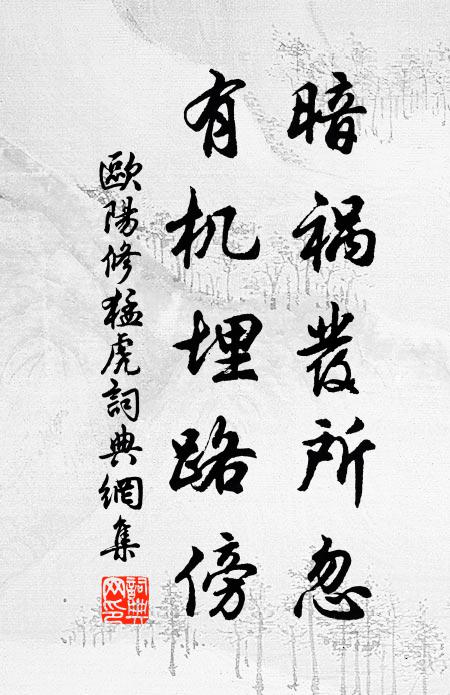 暗祸發所忽
有机埋路傍
歐陽修猛虎詞典網集
詞典